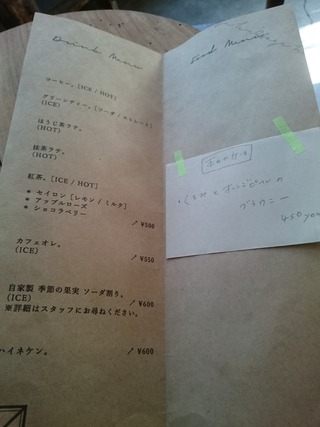 Drink Menu
コーヒー。[ICE / HOT]
グリーンティー。[ソーダ / ストレート]
(ICE)
ほうじ茶ラテ。
(HOT)
抹茶ラテ。
(HOT)
紅茶。[ICE / HOT]
* セイロン [レモン / ミルク]
* アップルローズ
* ショコラベリー
／ ¥500
カフェオレ。
(ICE)
／ ¥550
自家製 季節の果実 ソーダ割り。
(ICE)
／ ¥600
※詳細はスタッフにお尋ねください。
ハイネケン。
／ ¥600
Food Menu
本日のケーキ
・くるみとオレンジピールの
ブラウニー
450yen